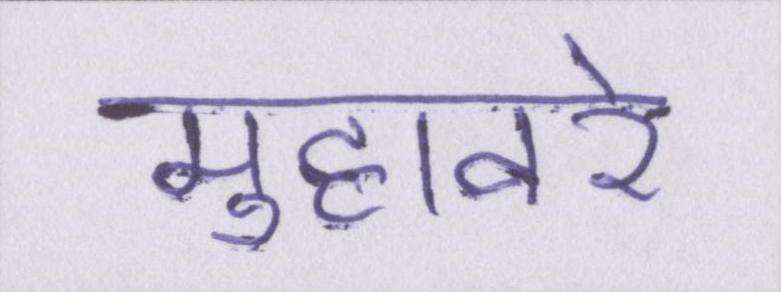 मुहावरे